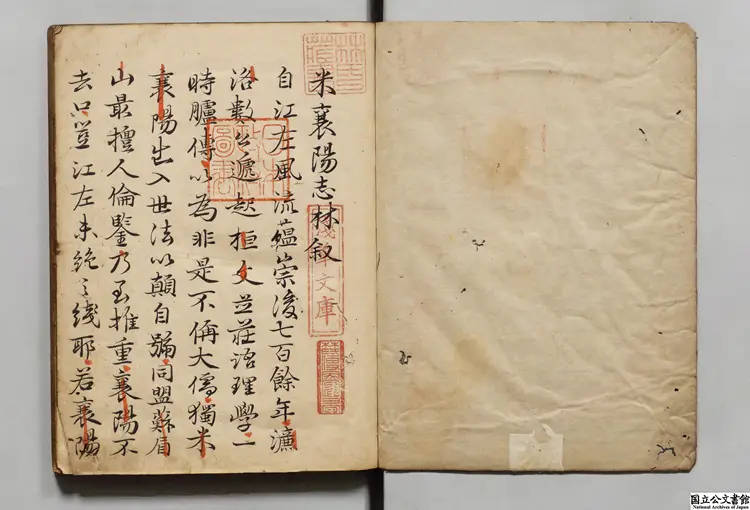 米襄陽志林叙
自江左風流蘊崇後七百餘年濂
洛數公遞起桓文並莊治理學一
時臚傳以為非是不偁大儒獨米
襄陽出入世法以顛自號同盟蘇眉
山最擅人倫鑒乃至推重襄陽不
去口豈江左未絕之綫耶若襄陽
林氏藏書
日本政府圖書
淺草文庫
国立公文書館
National Archives of Japan